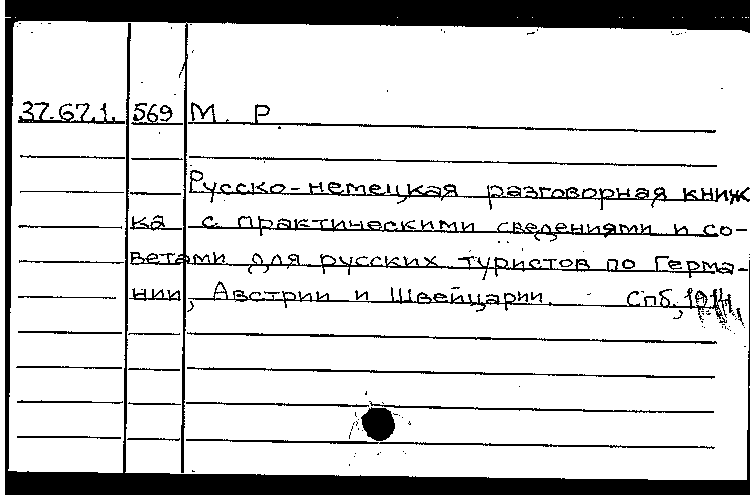 37.67.1. 569 М. Р.
Русско-немецкая разговорная книж
ка с практическими сведениями и со-
ветами для русских туристов по Герма-
нии, Австрии и Швейцарии. Спб,